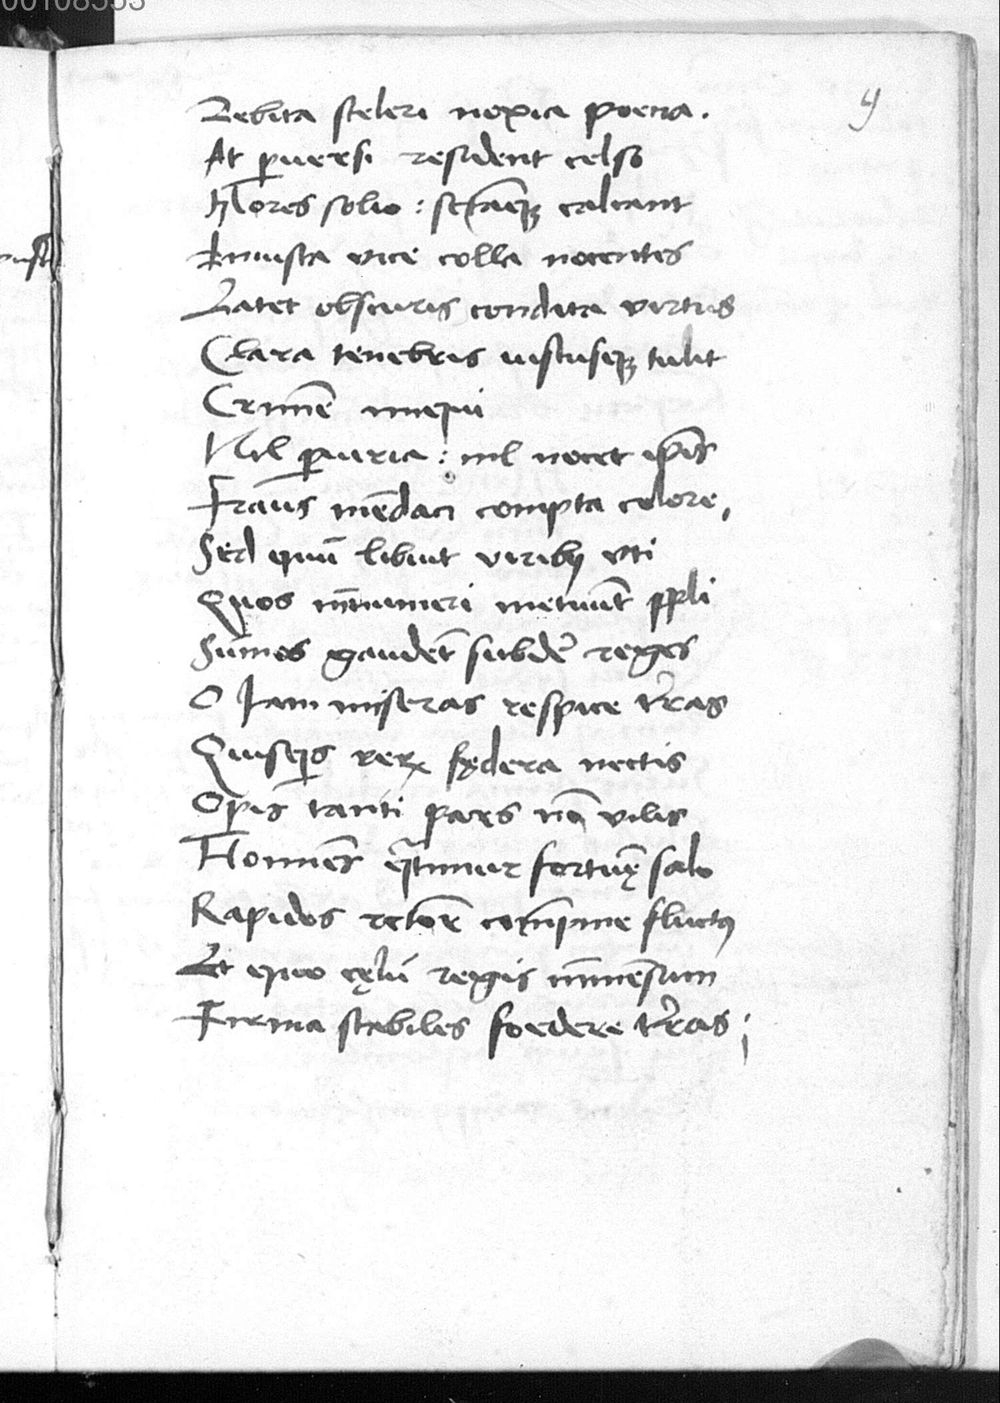 00108553
9
Debita sceleri noxia poena.
At ꝑuersi resident celso
Mores solio : sctāeqꝫ calcant
Iniusta vice colla nocentes
Latet obscuris condita virtus
Clara tenebris iustusqꝫ tulit
Crimē iniqui
Nil ꝑiuria : nil nocet ip̄is
Fraus mēdaci compta colore,
Sed quū libuit viribꝰ vti
Quos īnumeri metuūt ppli
Sūmos gaudēt subdē reges
O Iam miseras respice t̄ras
Quisqis rerꝝ fędera nectis
Opis tanti pars nō vilis
Homīes q̄timur fortuę salo
Rapidos rctōr comprime fluctꝰ
Et quo cęlū regis īmēsum
Firma stabiles foedere t̄ras ;